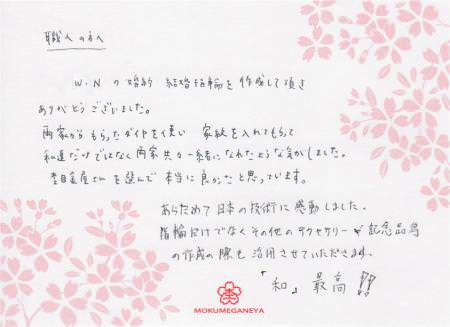 職人の方へ
W.Nの婚約 結婚指輪を作成して頂き
ありがとうございました。
両家からもらったダイヤを使い 家紋を入れてもらって
私達だけではなく両家共々一緒になれたような気がしました。
杢目金屋さんを選んで 本当に良かったと思っています。
あらためて日本の技術に感動しました。
指輪だけでなくその他のアクセサリーや記念品等
の作成の際も活用させていただきます。
「和」最高!!
MOKUMEGANEYA